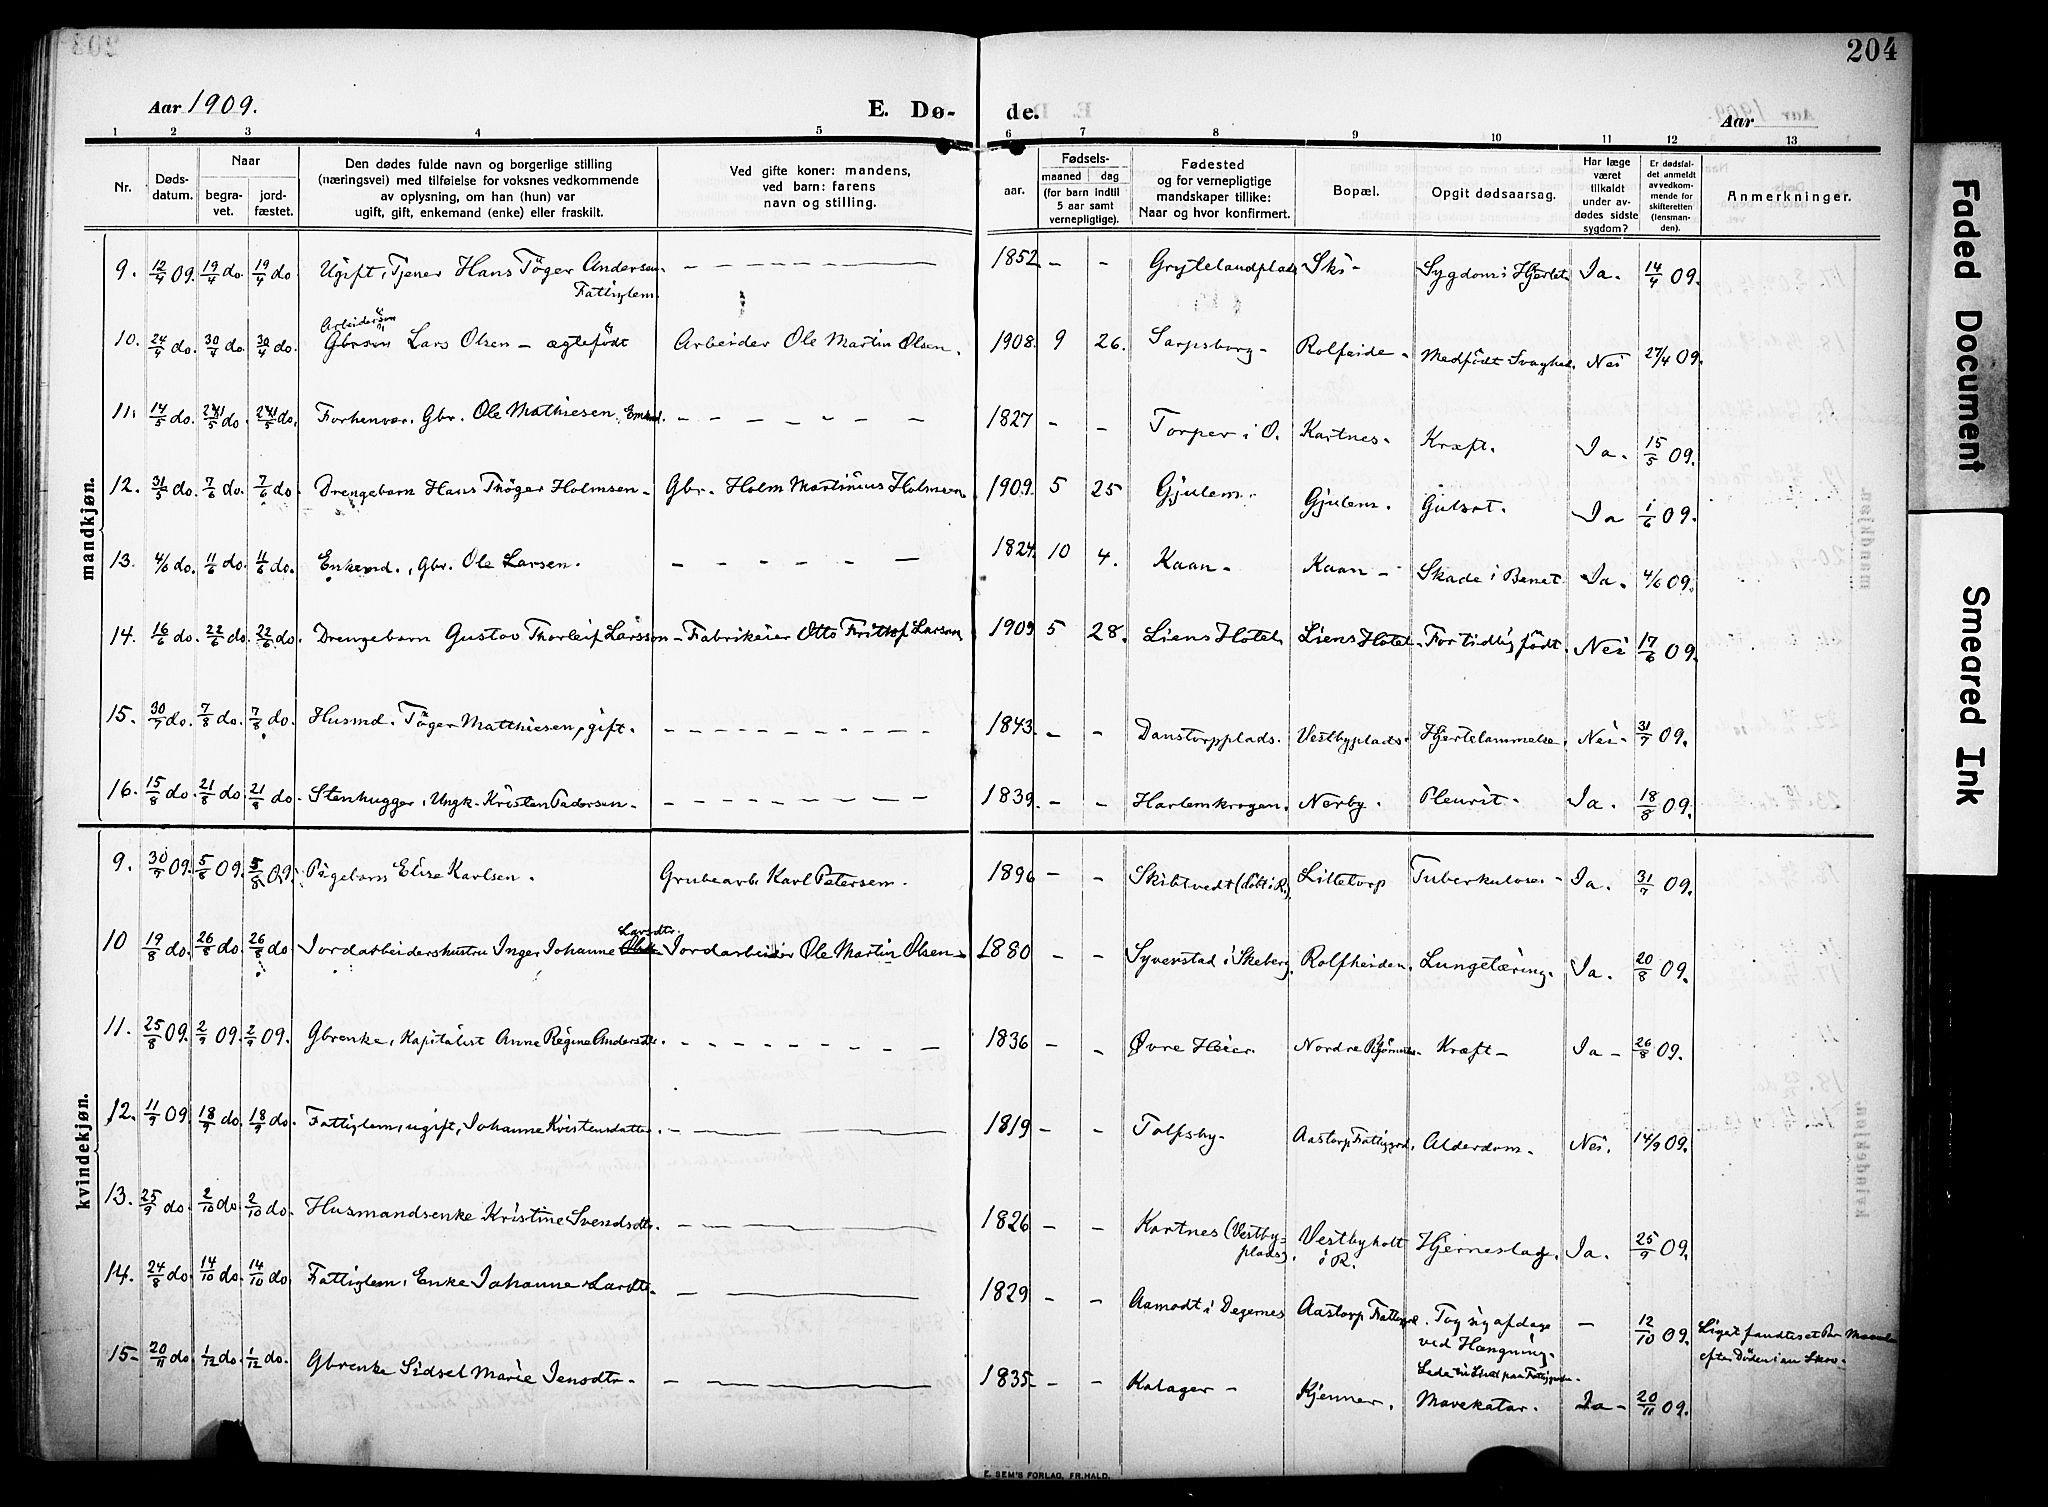 204
Aar 1909.
E. Dø-
de.
Aar
1 2 3 4 5 6 7 8 9 10 11 12 13
Nr.
Døds-
datum.
Naar
begra-
vet.
jord-
fæstet.
Den dødes fulde navn og borgerlige stilling
(næringsvei) med tilføielse for voksnes vedkommende
av oplysning, om han (hun) var
ugift, gift, enkemand (enke) eller fraskilt.
Ved gifte koner: mandens,
ved barn: farens
navn og stilling.
Fødsels-
aar.
maaned dag
(for barn indtil
5 aar samt
vernepligtige).
Fødested
og for vernepligtige
mandskaper tillike:
Naar og hvor konfirmert.
Bopæl.
Opgit dødsaarsag.
Har læge
været
tilkaldt
under av-
dødes sidste
sygdom?
Er dødsfal-
det anmeldt
av vedkom-
mende for
skifteretten
(lensman-
den).
Anmerkninger.
mandkjøn.
9. 12/4 09. 19/4 do. 19/4 do. Ugift, Tjener Hans Töger Andersen – 1852 – – Grytelandplads Ski – Sygdom i Hjertet Ja. 14/4 09.
Fattiglem.
Arbeidersøn
10. 24/4 do. 30/4 do. 30/4 do. Gbrsøn Lars Olsen – ægtefödt Arbeider Ole Martin Olsen. 1908. 9 26. Sarpsborg – Rolfeide – Medfödt Svaghed. Nei 27/4 09.
11. 14/5 do. 21/5 do. 21/5 do. Forhenvær. Gbr. Ole Mathiesen, Enkmd. – 1827 – – Torper i O. Kartnes – Kræft. Ja. 15/5 09.
12. 31/5 do. 7/6 do. 7/6 do. Drengebarn Hans Thöger Holmsen – Gbr. Holm Martinius Holmsen 1909. 5 25 Gjulem. Gjulem. Gulsot. Ja 1/6 09.
13. 4/6 do. 11/6 do. 11/6 do. Enkemd., Gbr. Ole Larsen. – 1824. 10 4. Kaan – Kaan – Skade i Benet Ja. 4/6 09.
14. 16/6 do. 22/6 do. 22/6 do. Drengebarn Gustav Thorleif Larsson – Fabrikeier Otto Frittof Larson 1909 5 28. Liens Hotel Liens Hotel – For tidlig födt. Nei 17/6 09.
15. 30/7 do. 7/8 do. 7/8 do. Husmd. Töger Matthiesen, gift. – 1843. – – Danstorpplads. Vestbyplads. Hjertelammelse. Nei – 31/7 09.
16. 15/8 do. 21/8 do. 21/8 do. Stenhugger, Ungk. Kristen Pedersen – – 1839. – – Harlemkrogen. Nerby. Pleurit. Ja. 18/8 09.
kvindekjøn.
9. 30/7 09. 5/8 09. 5/8 09. Pigebarn Elise Karlsen. Grubearb. Karl Petersen. 1896 – – Skibtvedt (döbt i R.), Litletorp Tuberkulose – Ja. 31/7 09.
Larsdtr.
10 19/8 do. 26/8 do. 26/8 do Jordarbeidershustru Inger Johanne Jordarbeider Ole Martin Olsen – 1880 – – Syverstad i Skeberg, Rolfheiden. Lungetæring. Ja. 20/8 09.
11. 25/8 09. 2/9 09. 2/9 09. Gbrenke, Kapitalist Anne Regine Andersdtr. – 1836 – – Øvre Heier. Nordre Kræft – Ja – 26/8 09.
12. 11/9 09. 18/9 do 18/9 do. Fattiglem, ugift, Johanne Kristensdatter. – 1819 – – Tolfsby – Aastorp Fattiggrd. Alderdom – Nei. 14/9 09.
13. 25/9 do. 2/10 do. 2/10 do. Husmandsenke Kristine Svendsdtr. – 1826 – – Kartnes (Vestby-
plads). Vestbyholt
i R. Hjerneslag. Ja. 25/9 09.
14. 24/8 do. 14/10 do. 14/10 do. Fattiglem, Enke Johanne Larsdtr. – 1829 – – Aamodt i Degernes Aastorp Fattiggrd. Tog sig afdage
ved Hængning. – 12/10 09. Liget fandtes et Par Maaneder
efter Döden i en Skov.
15 – 20/11 do. 1/12 do. 1/12 do. Gbrenke Sidsel Marie Jensdtr – – 1835 – – Kalager – Kjenner. Mavekatar. Ja – 20/11 09.
E. SEM'S FORLAG, FR.HALD.
Faded Document
Smeared Ink